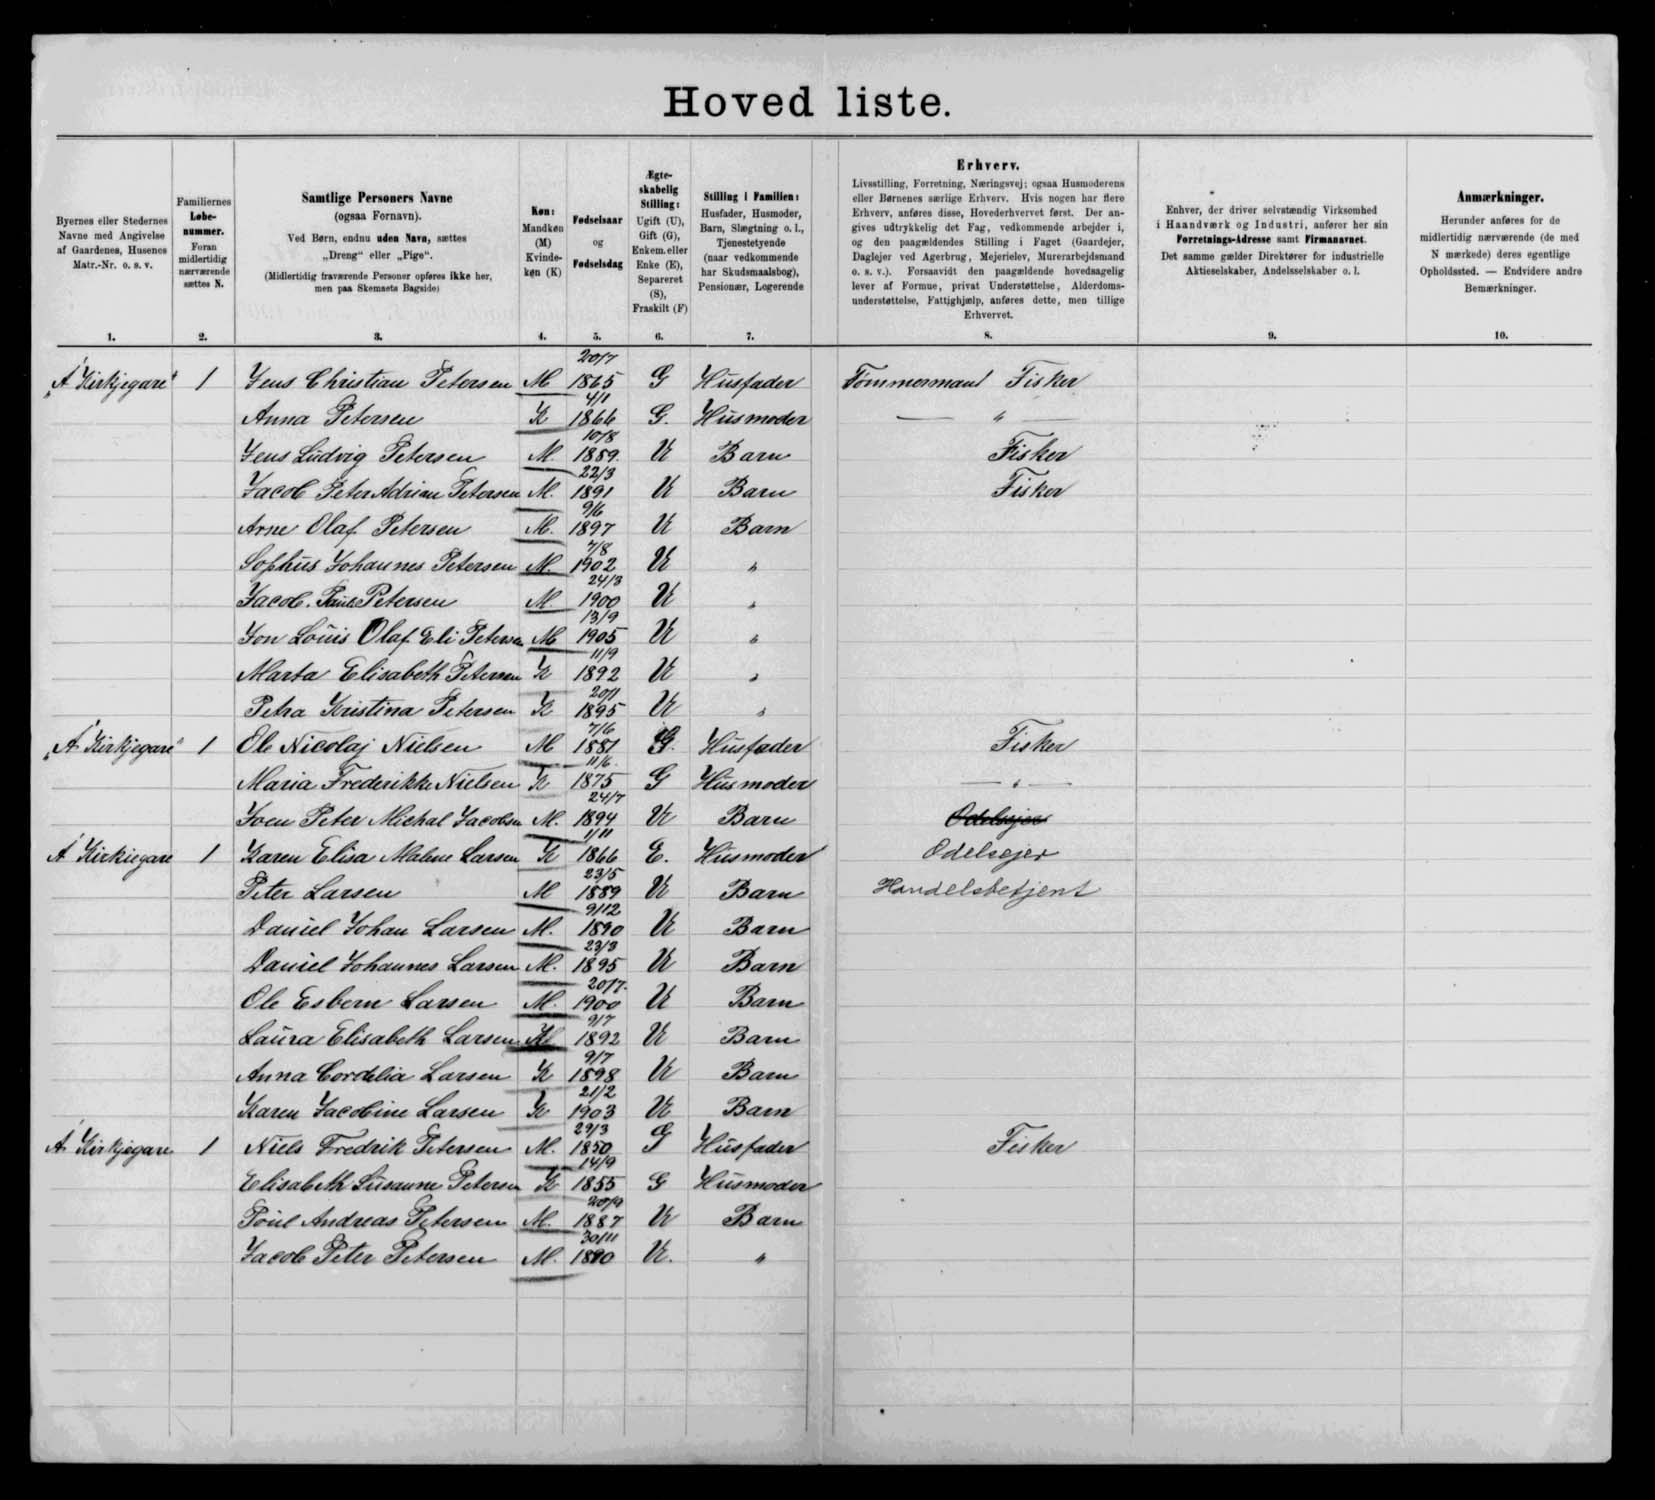 Hoved liste.
Byernes eller Stedernes Navne med Angivelse af Gaardenes, Husenes Matr.-Nr. o. s. v.
Familiernes Løbe-nummer. Foran midlertidig nærværende sættes N.
Samtlige Personers Navne
(ogsaa Fornavn).
Ved Børn, endnu uden Navn, sættes
„Dreng“ eller „Pige“.
(Midlertidig fraværende Personer opføres ikke her,
men paa Skemaets Bagside)
Køn: Mandkøn (M) Kvinde-køn (K)
Fødselsaar og Fødselsdag
Ægte-skabelig Stilling: Ugift (U), Gift (G), Enkem. eller Enke (E), Separeret (S), Fraskilt (F)
Stilling i Familien: Husfader, Husmoder, Barn, Slægtning o. l., Tjenestetyende (naar vedkommende har Skudsmaalsbog), Pensionær, Logerende
Erhverv.
Livsstilling, Forretning, Næringsvej; ogsaa Husmoderens
eller Børnenes særlige Erhverv. Hvis nogen har flere
Erhverv, anføres disse, Hovederhvervet først. Der an-
gives udtrykkelig det Fag, vedkommende arbejder i,
og den paagældendes Stilling i Faget (Gaardejer,
Daglejer ved Agerbrug, Mejerielev, Murerarbejdsmand
o. s. v.). Forsaavidt den paagældende hovedsagelig
lever af Formue, privat Understøttelse, Alderdoms-
understøttelse, Fattighjælp, anføres dette, men tillige
Erhvervet.
Enhver, der driver selvstændig Virksomhed
i Haandværk og Industri, anfører her sin
Forretnings-Adresse samt Firmanavnet.
Det samme gælder Direktører for industrielle
Aktieselskaber, Andelsselskaber o. l.
Anmærkninger.
Herunder anføres for de
midlertidig nærværende (de med
N mærkede) deres egentlige
Opholdssted. — Endvidere andre
Bemærkninger.
1. 2. 3. 4. 5. 6. 7. 8. 9. 10.
„Á Kirkjegare“ 1 Jens Christian Petersen M 20/7 1865 G Husfader Tømmermand Fisker
Anna Petersen K 4/1 1866 G. Husmoder — „ —
Jens Ludvig Petersen M. 10/8 1889. U Barn Fisker
Jacob Peter Adrian Petersen M. 22/3 1891 U Barn Fisker
Arne Olaf Petersen M. 9/6 1897 U Barn
Sophus Johannes Petersen M. 7/8 1902 U „
Jacob. Paul Petersen M. 24/3 1900 U „
Jon Louis Olaf Eli Petersen M 13/9 1905 U „
Marta Elisabeth Petersen K 11/9 1892 U „
Petra Kristina Petersen K 20/1 1895 U „
„Á Kirkjegare“ 1 Ole Nicolaj Nielsen M 7/6 1881 G. Husfader Fisker
Maria Frederikke Nielsen K 11/6. 1875 G Husmoder — „ —
Joen Peter Michal Jacobsen M. 24/7 1894 U Barn Odelsejer
Á Kirkiegare 1 Karen Elisa Malene Larsen K 1/11 1866 E. Husmoder Odelsejer
Peter Larsen M 23/5 1889 U Barn Handelsbetjent
Daniel Johan Larsen M. 9/12 1890 U Barn
Daniel Johannes Larsen M. 23/3 1895 U Barn
Ole Esbern Larsen M. 20/7. 1900 U Barn
Laura Elisabeth Larsen K 9/7 1892 U Barn
Anna Cordelia Larsen K 9/7 1898 U Barn
Karen Jacobine Larsen K 21/2 1903 U Barn
Á Kirkjegare 1 Niels Fredrik Petersen M. 29/3 1850 G Husfader Fisker
Elisabeth Susanne Petersen K 14/9 1855 G Husmoder
Poul Andreas Petersen M. 20/9 1887 U Barn
Jacob Peter Petersen M. 30/11 1890 U. „